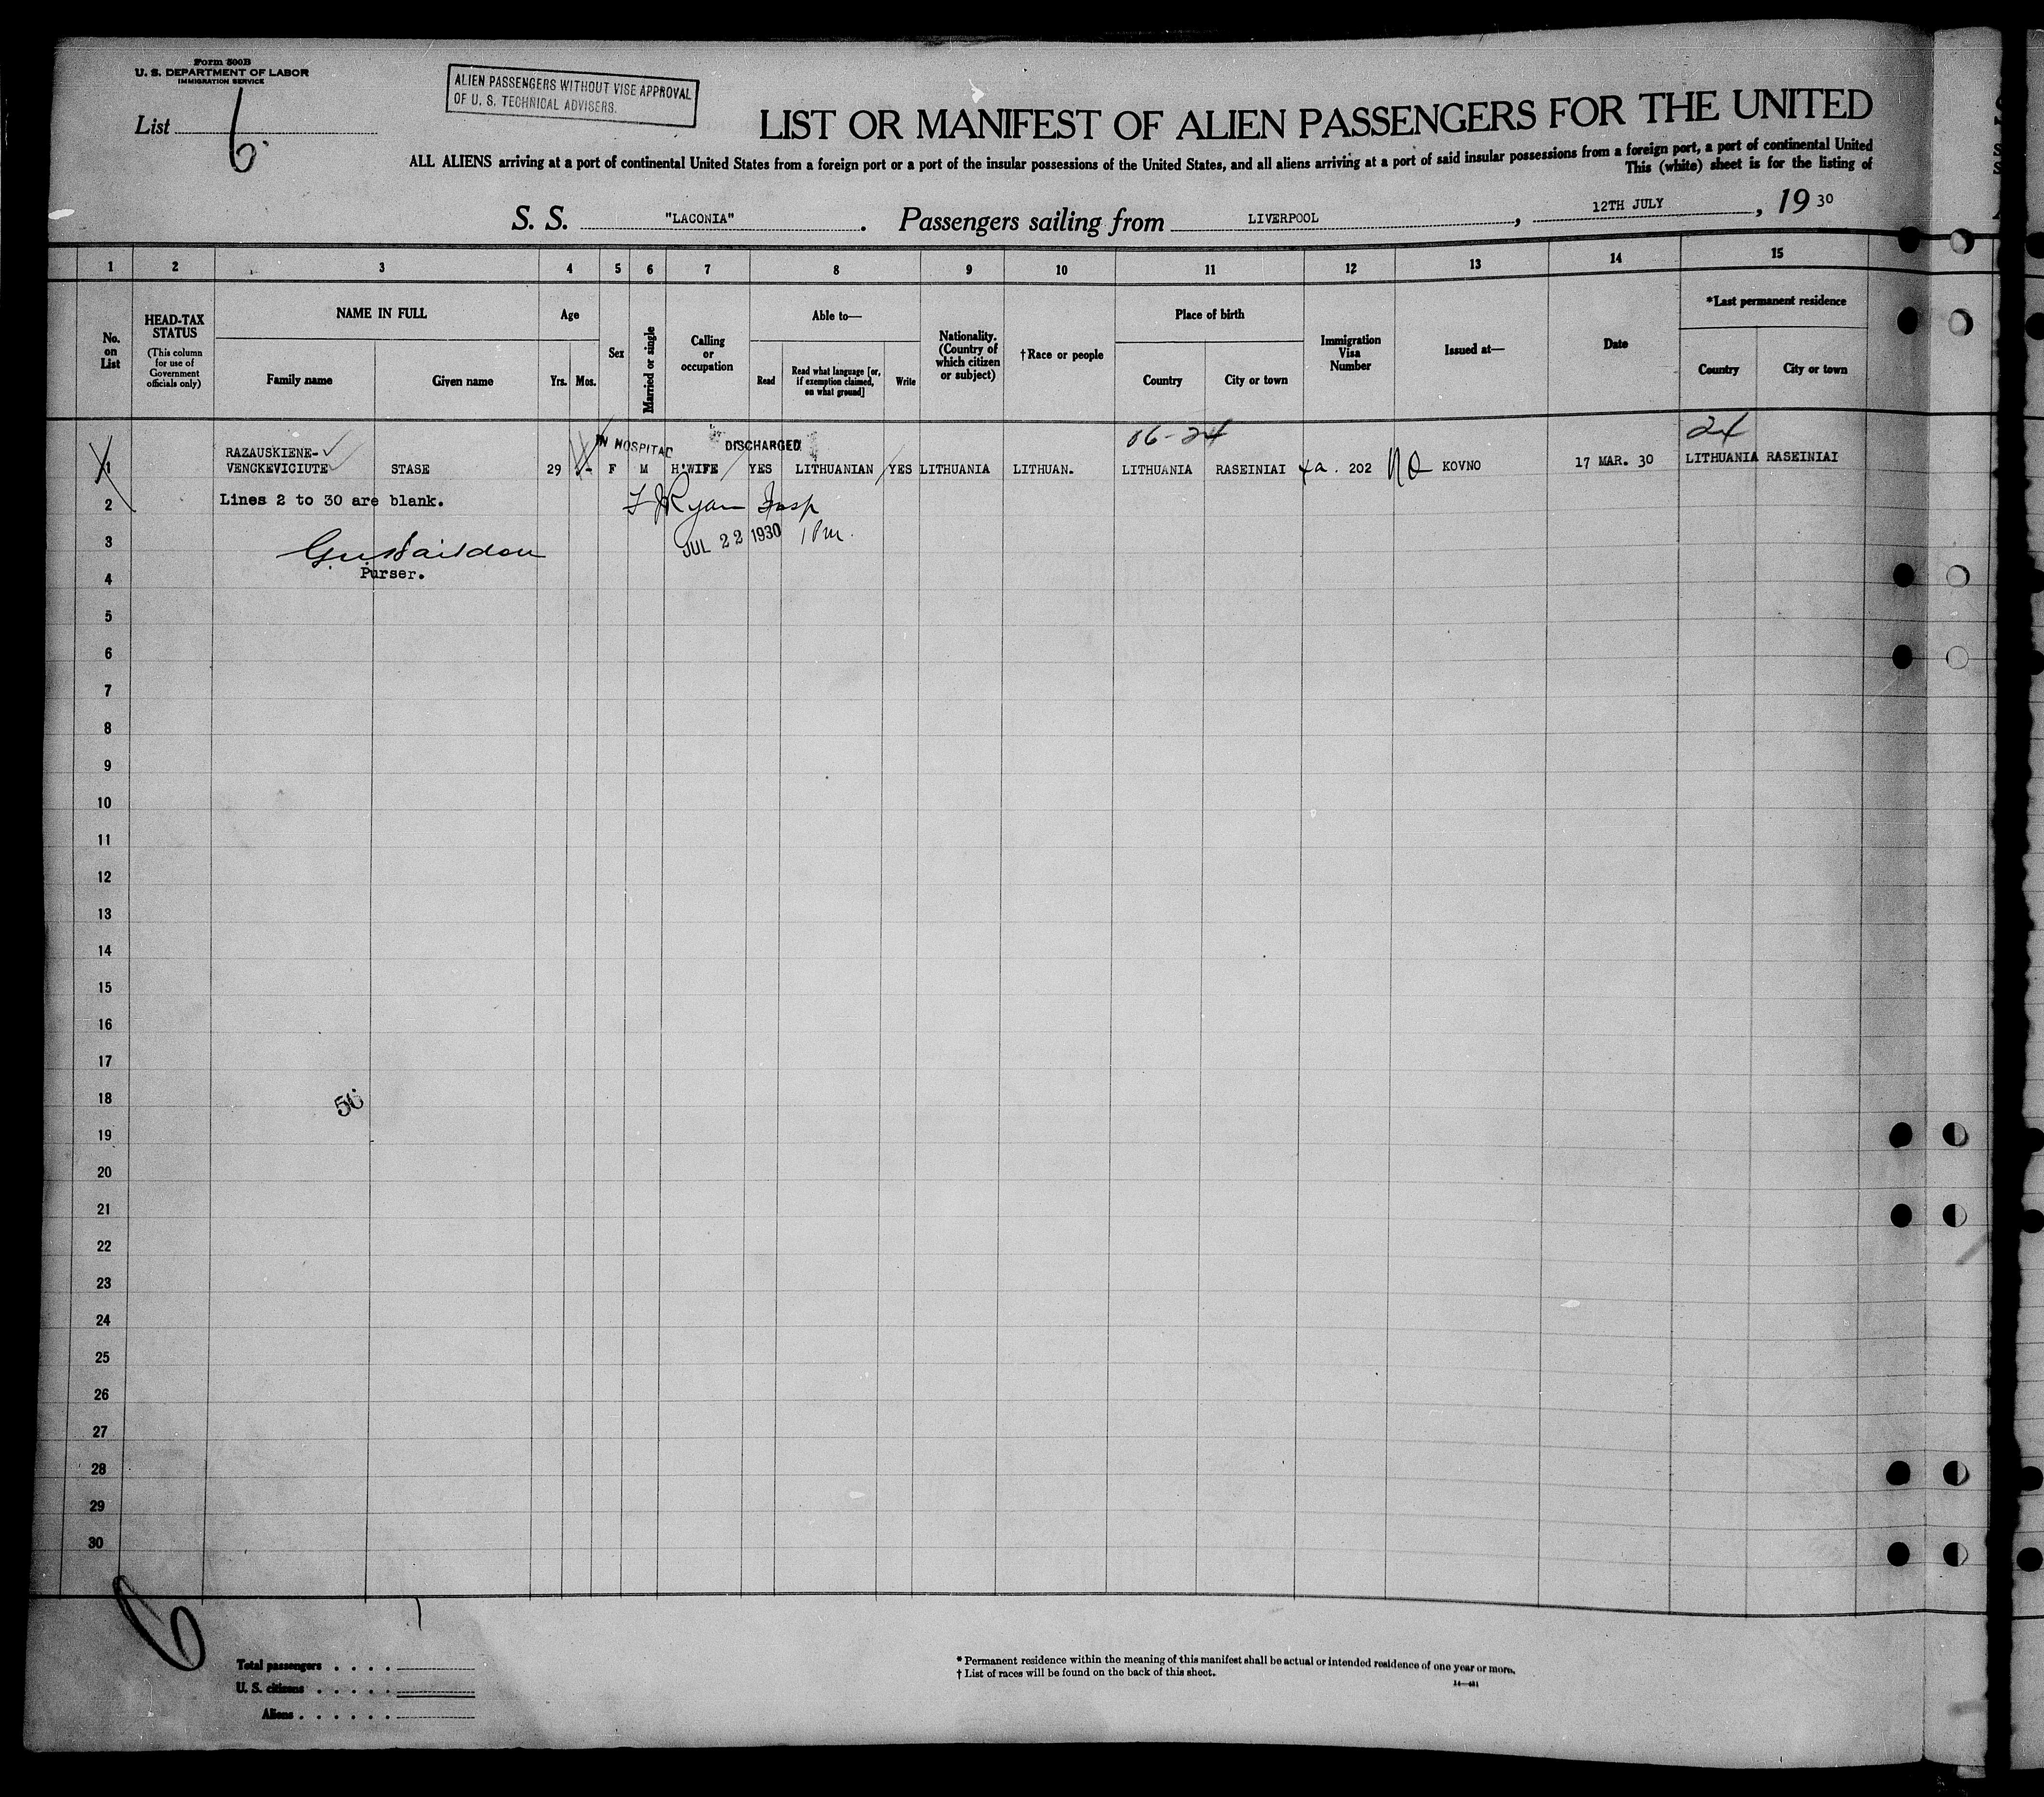 Form 500B
U. S. DEPARTMENT OF LABOR
IMMIGRATION SERVICE
List 6
ALIEN PASSENGERS WITHOUT VISE APPROVAL
OF U. S. TECHNICAL ADVISERS.
LIST OR MANIFEST OF ALIEN PASSENGERS FOR THE UNITED
ALL ALIENS arriving at a port of continental United States from a foreign port or a port of the insular possessions of the United States, and all aliens arriving at a port of said insular possessions from a foreign port, a port of continental United
This (white) sheet is for the listing of
S. S. "LACONIA". Passengers sailing from LIVERPOOL, 12TH JULY, 19 30
1 2 3 4 5 6 7 8 9 10 11 12 13 14 15
No. on List
HEAD-TAX STATUS
(This column for use of Government officials only)
NAME IN FULL
Family name
Given name
Age
Yrs. Mos.
Sex
Married or single
Calling or occupation
Able to—
Read
Read what language [or, if exemption claimed, on what ground]
Write
Nationality. (Country of which citizen or subject)
†Race or people
Place of birth
Country
City or town
Immigration Visa Number
Issued at—
Date
*Last permanent residence
Country
City or town
IN HOSPITAL DISCHARGED 06-24 24
1 RAZAUSKIENE-
VENCKEVICIUTE STASE 29 - F M H'WIFE YES LITHUANIAN YES LITHUANIA LITHUAN. LITHUANIA RASEINIAI 202 KOVNO 17 MAR. 30 LITHUANIA RASEINIAI
2 Lines 2 to 30 are blank. Ryan Insp
JUL 22 1930 1 Pm.
3
Purser.
4
5
6
7
8
9
10
11
12
13
14
15
16
17
18
19
20
21
22
23
24
25
26
27
28
29
30
6
Total passengers
U. S. citizens
Aliens
* Permanent residence within the meaning of this manifest shall be actual or intended residence of one year or more.
† List of races will be found on the back of this sheet.